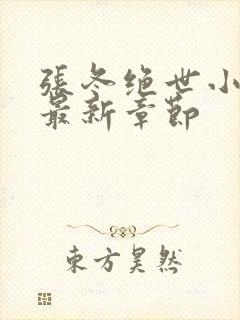 張冬绝世小
最新章節
東方昊然